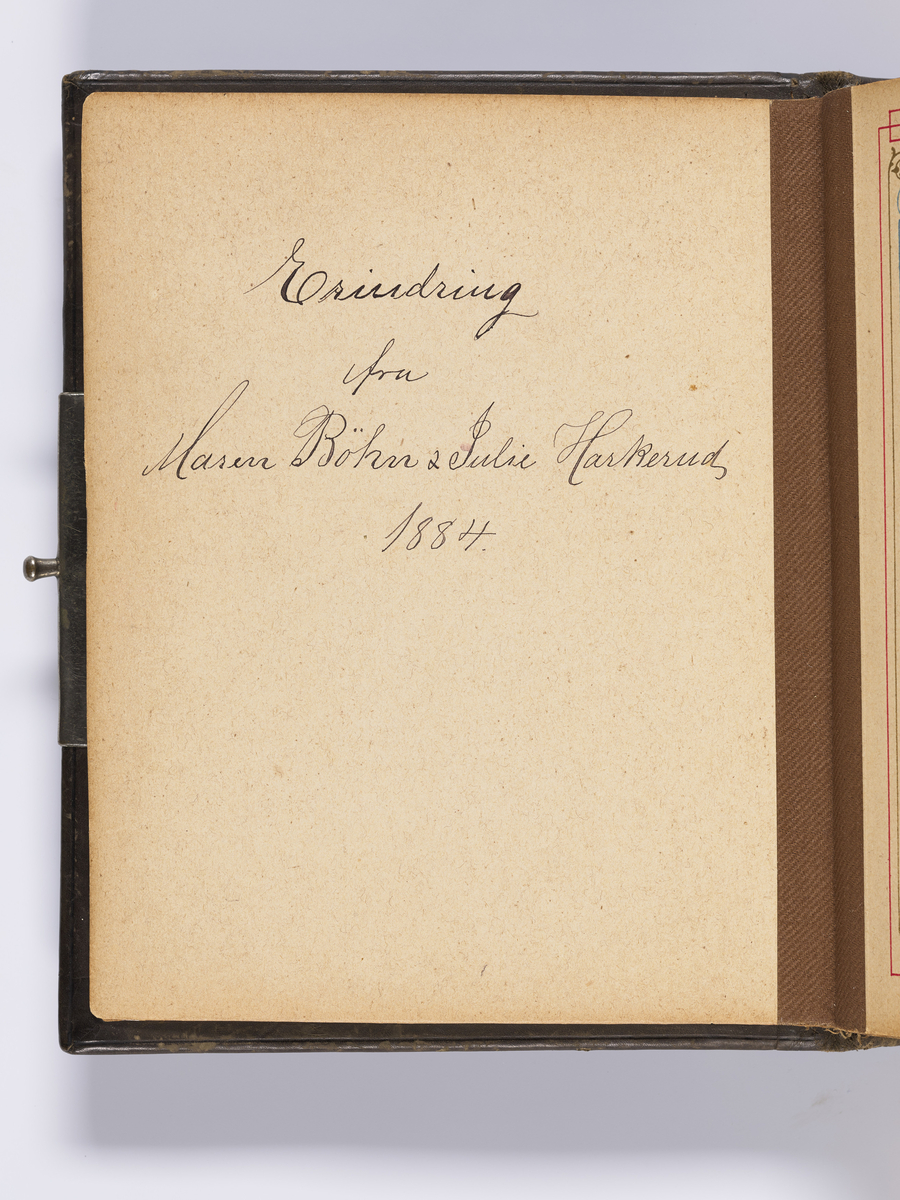 Erindring
fra
Maren Böhn & Julie Harkerud
1884.